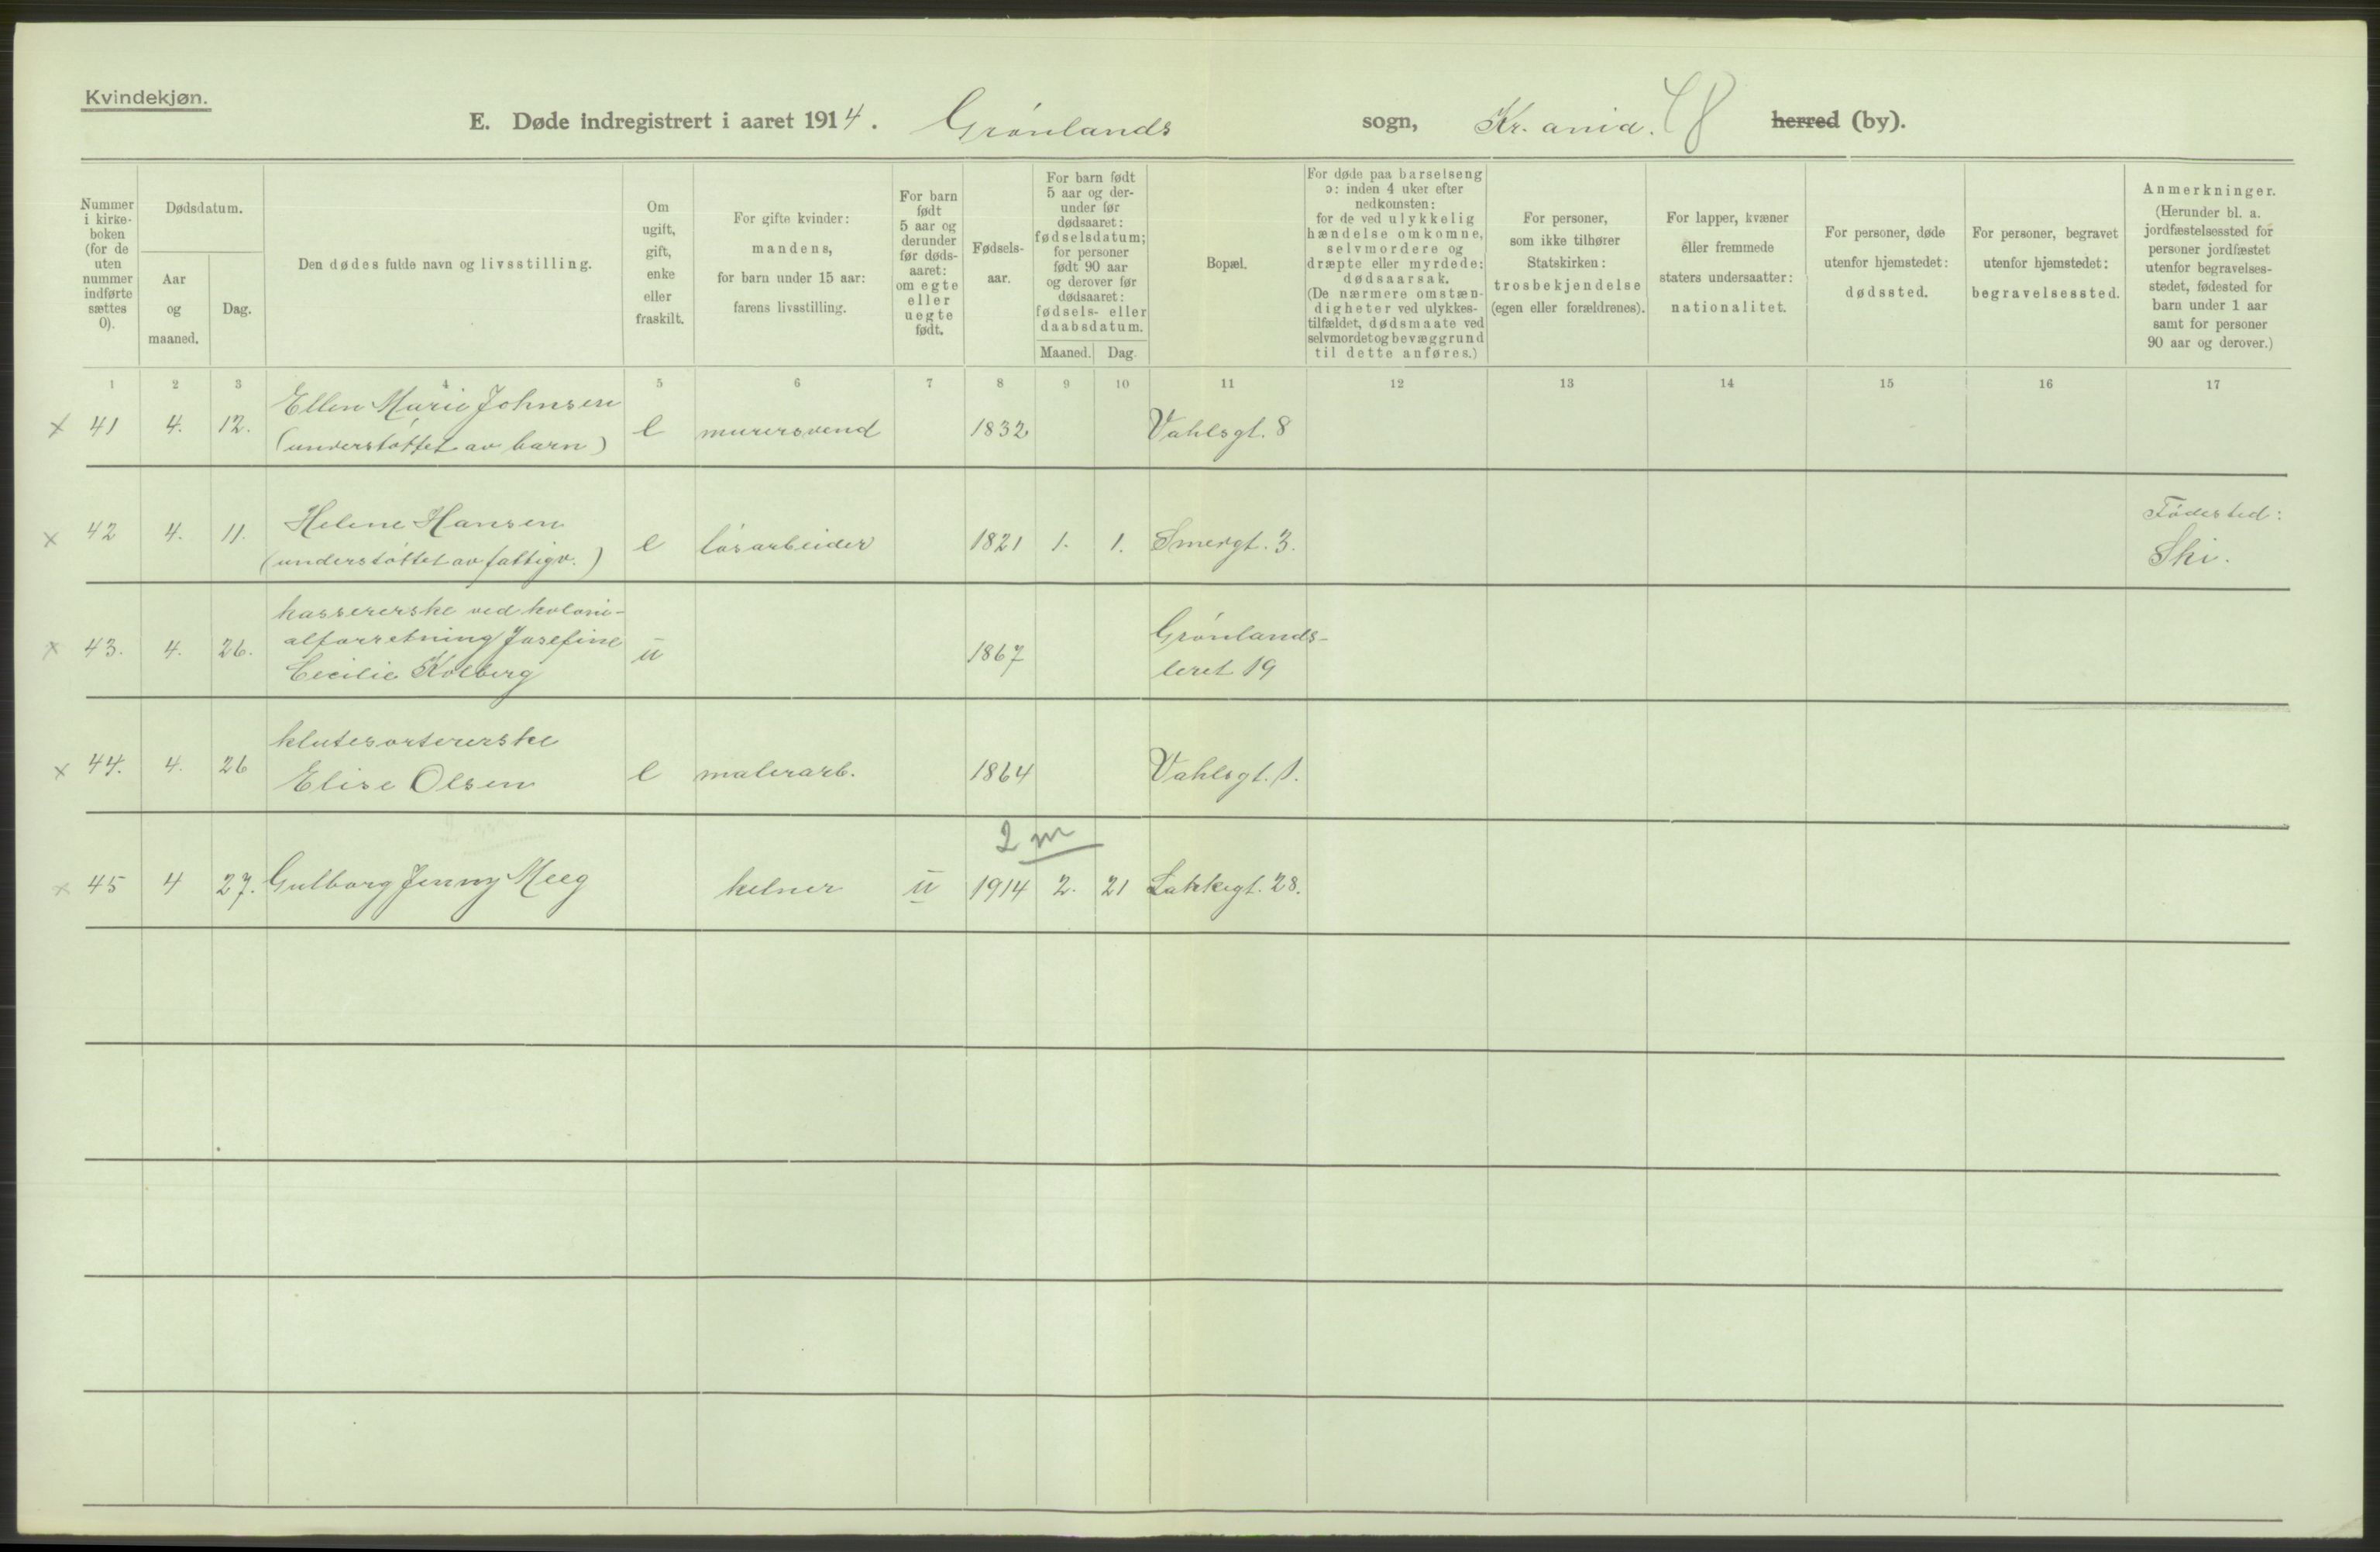 Kvindekjøn.
E. Døde indregistrert i aaret 1914. Grønlands sogn, Kr.ania. herred (by).
Nummer i kirke- boken (for de uten nummer indførte sættes 0).
Dødsdatum.
Aar og maaned.
Dag.
Den dødes fulde navn og livsstilling.
Om ugift, gift, enke eller fraskilt.
For gifte kvinder: mandens, for barn under 15 aar: farens livsstilling.
For barn født 5 aar og derunder før døds- aaret: om egte eller uegte født.
Fødsels- aar.
For barn født 5 aar og der- under før dødsaaret: fødselsdatum; for personer født 90 aar og derover før dødsaaret: fødsels- eller daabsdatum.
Maaned.
Dag.
Bopæl.
For døde paa barselseng ɔ: inden 4 uker efter nedkomsten: for de ved ulykkelig hændelse omkomne, selvmordere og dræpte eller myrdede: dødsaarsak. (De nærmere omstæn- digheter ved ulykkes- tilfældet, dødsmaate ved selvmordet og bevæggrund til dette anføres.)
For personer, som ikke tilhører Statskirken: trosbekjendelse (egen eller forældrenes).
For lapper, kvæner eller fremmede staters undersaatter: nationalitet.
For personer, døde utenfor hjemstedet: dødssted.
For personer, begravet utenfor hjemstedet: begravelsessted.
Anmerkninger. (Herunder bl. a. jordfæstelsessted for personer jordfæstet utenfor begravelses- stedet, fødested for barn under 1 aar samt for personer 90 aar og derover.)
1 2 3 4 5 6 7 8 9 10 11 12 13 14 15 16 17
x 41 4. 12. Ellen Marie Johnsen (understøttet av barn) e murersvend 1832 Vahlsgt. 8
x 42 4. 11. Helene Hansen (understøttet av fattigv.) e løsarbeider 1821 1. 1. Smedgt. 3. Fødested: Ski.
x 43. 4. 26. kassererske ved koloni- alforretning Josefine Cecilie Kolberg u 1867 Grønlands- leret 19
x 44. 4. 26 klutesortererske Elise Olsen e malerarb. 1864 Vahlsgt. 1.
2 m
x 45 4 27. Gulborg Jenny Meeg kelner u 1914 2. 21 Lakkegt. 28.